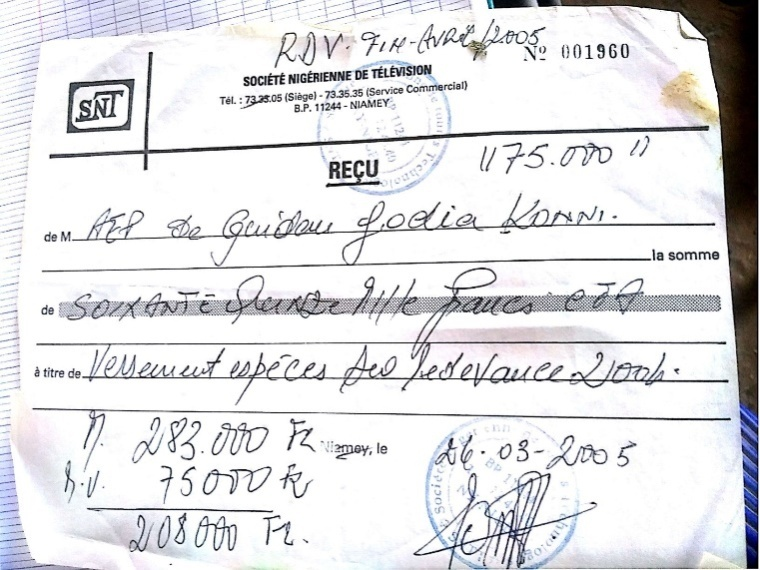 RDV. FIN-AVRIL/2005
N° 001960
SNT
SOCIÉTÉ NIGÉRIENNE DE TÉLÉVISION
Tél. : 73.35.05 (Siège) - 73.35.35 (Service Commercial)
B.P. 11244 - NIAMEY
REÇU
"75.000"
de M. AEP de Guidan Godia KONNI.
la somme
de SOIXANTE Quinze Mille Francs CFA
à titre de Versement espèces Redevance 2004.
283.000 Fr
Niamey, le 26-03-2005
75000 Fr
208000 Fr.